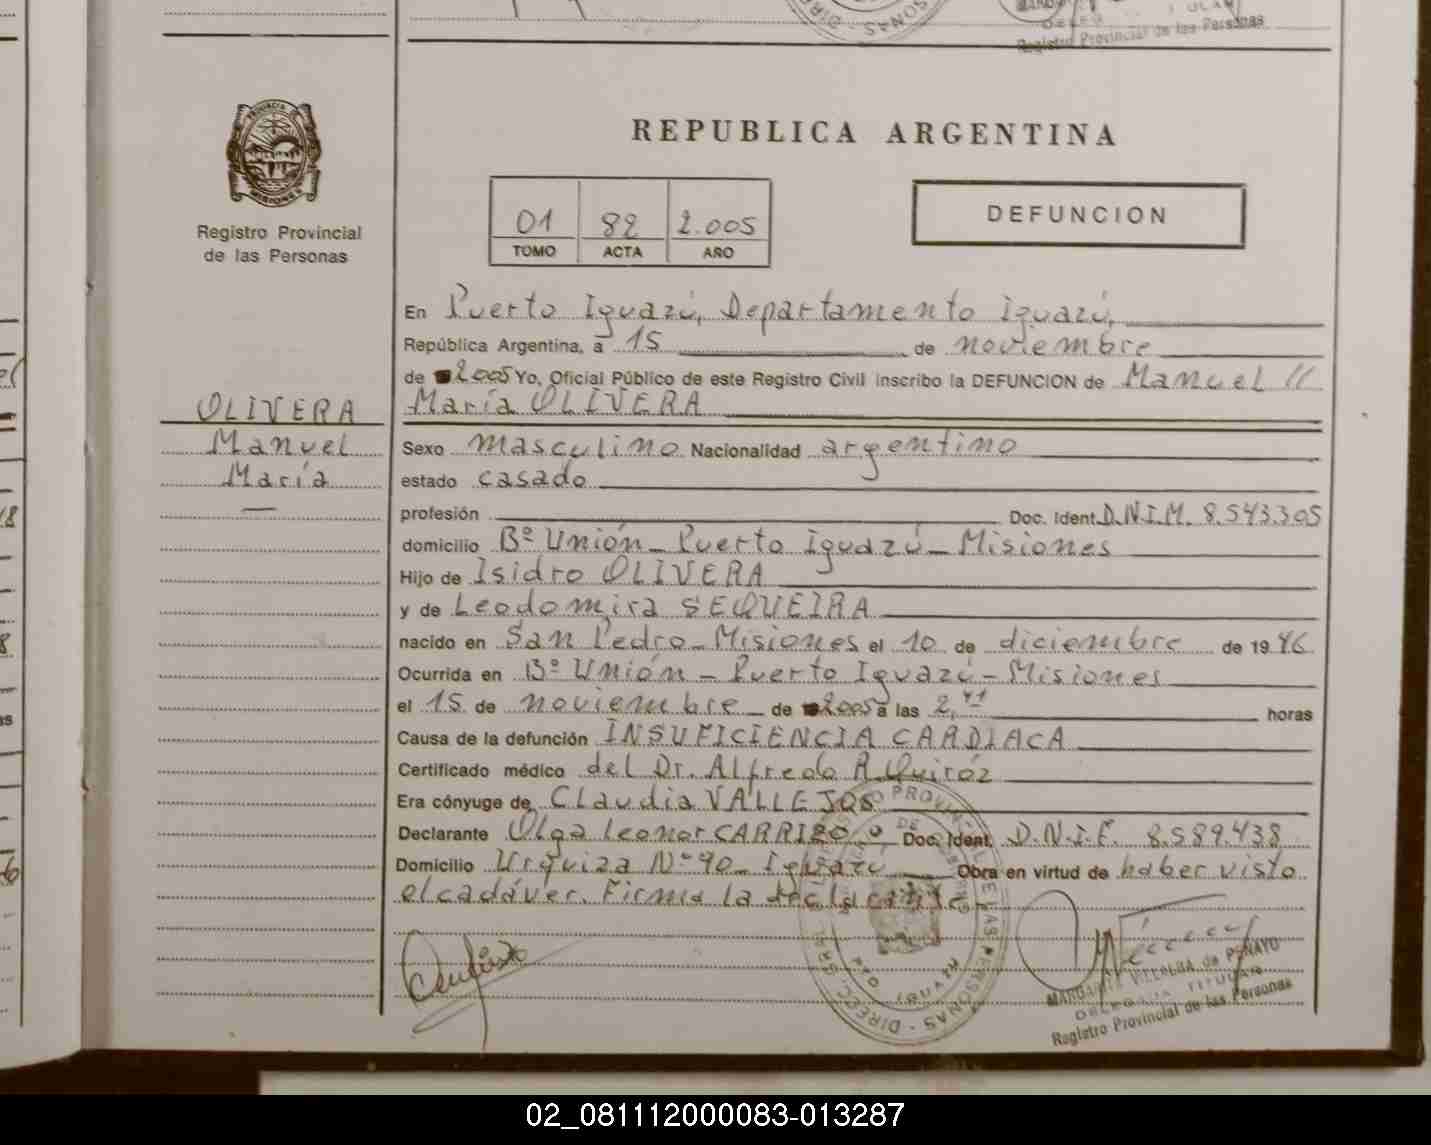 Registro Provincial de las Personas
PROVINCIA DE MISIONES
Registro Provincial
de las Personas
REPUBLICA ARGENTINA
01 82 2.005
TOMO ACTA AÑO
DEFUNCION
OLIVERA
Manuel
María
En Puerto Iguazú, Departamento Iguazú,
República Argentina, a 15 de noviembre
de 2005 Yo, Oficial Público de este Registro Civil inscribo la DEFUNCION de Manuel //
María OLIVERA
Sexo masculino Nacionalidad argentino
estado casado
profesión Doc. Ident. D.N.I.M. 8.543.305
domicilio Bº Unión - Puerto Iguazú - Misiones
Hijo de Isidro OLIVERA
y de Leodomira SEQUEIRA
nacido en San Pedro - Misiones el 10 de diciembre de 1946
Ocurrida en Bº Unión - Puerto Iguazú - Misiones
el 15 de noviembre de 2005 a las 2, horas
Causa de la defunción INSUFICIENCIA CARDIACA
Certificado médico del Dr. Alfredo R. Quiróz
Era cónyuge de Claudia VALLEJOS
Declarante Olga Leonor CARRIZO Doc. Ident. D.N.I.F. 8.589.438
Domicilio Urquiza Nº 90 - Iguazú Obra en virtud de haber visto
el cadáver. Firma la declarante.
MARGARITA VILLALBA de PENAYO
DELEGADA TITULAR
Registro Provincial de las Personas
02_081112000083-013287